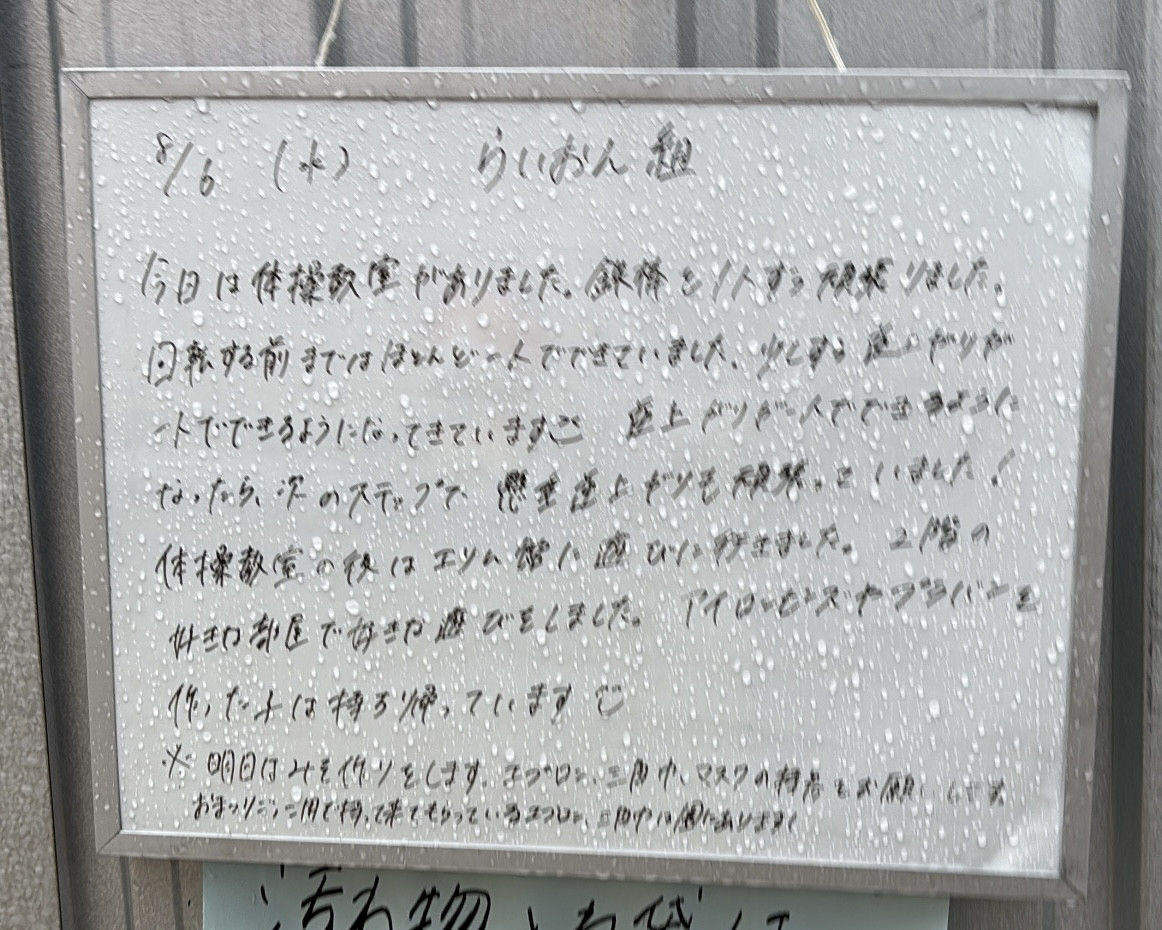 8/6 (水) らいおん組
今日は体操教室がありました。鉄棒を1人ずつ頑張りました。
回転する前まではほとんど一人でできていました。少しずつ逆上がりが
一人でできるようになってきています 逆上がりが一人でできるように
なったら、次のステップで 懸垂逆上がりも頑張っていました!
体操教室の後はエリム館に遊びに行きました。2階の
好きな部屋で好きな遊びをしました。アイロンビーズやプラバンを
作った子は持ち帰っています
※明日はみそ作りをします。エプロン、三角巾、マスクの持参をお願いします
おまつりごっこ用で持って来てもらっているエプロン、三角巾は園にあります
汚れ物入れ袋は